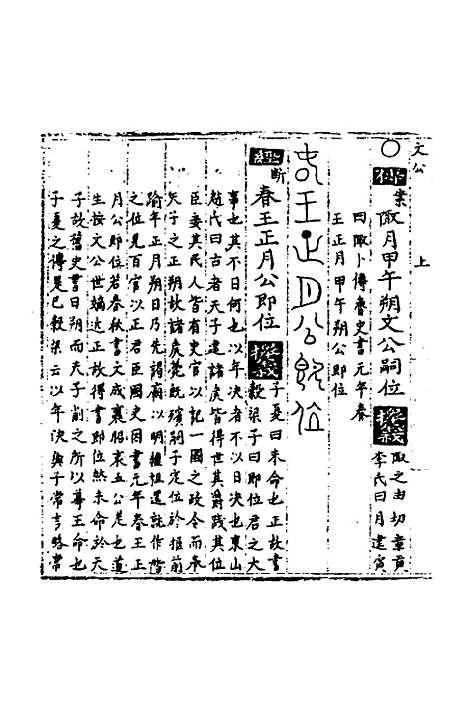 文公 上
○業陬月甲午朔文公嗣位 陬之由切章貢
李氏曰月建寅
曰陬卜傳魯史書元年春
王正月甲午朔公即位
春王正月公即位
經斷 春王正月公即位 子夏曰未命也正故書
穀梁子曰即位君之大
事也其不日何也以年決者不以日決也東山
趙氏曰古者天子建諸侯皆得世其爵踐其位
臣委其民人皆有史官以記一國之政令而奉
天子之正朔故諸侯薨既殯嗣子定位於柩前
踰年正月朔日乃先謁廟以明繼祖還就阼階
之位見百官以正君臣國史因書元年春王正
月公即位若春秋書文成襄昭哀五公是也道
生按文公世嫡近正故得書即位然未命於天
子故舊史書日朔而夫子削之所以尊王命也
子夏之傳是已穀梁云以年決與子常言略常